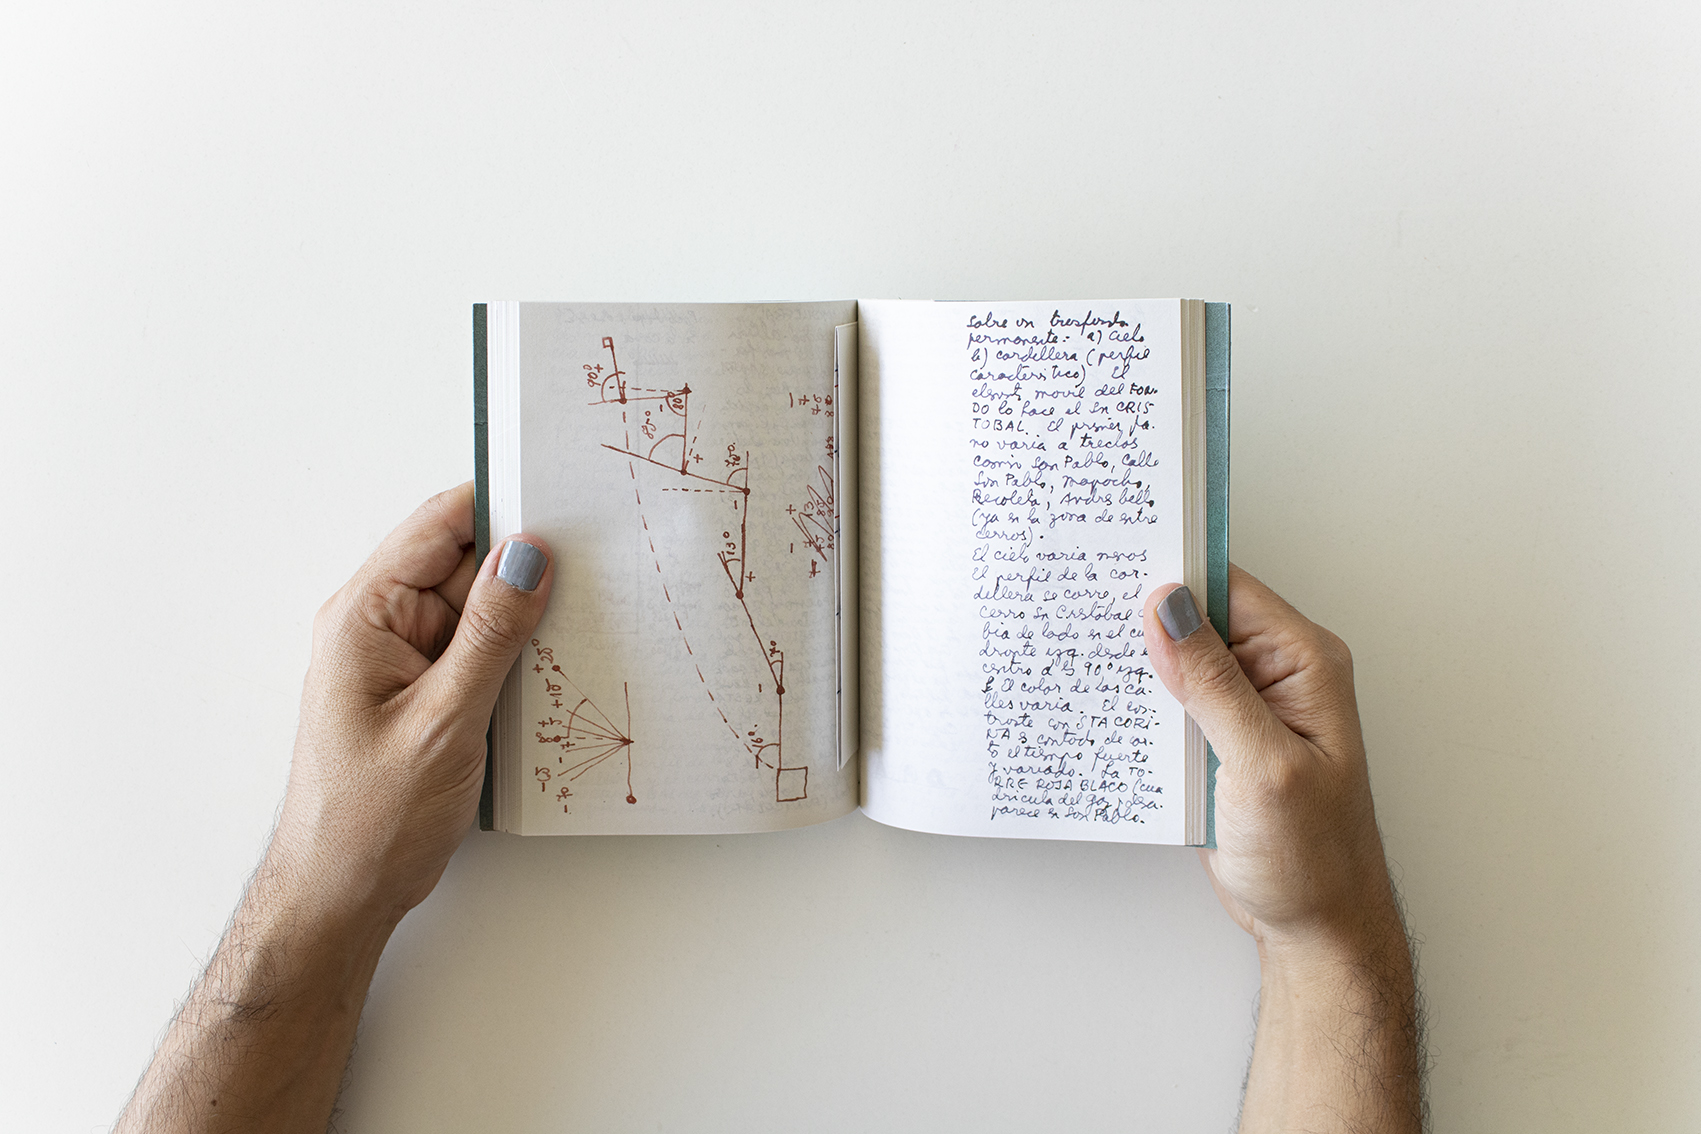 90° +
80°
-
85°
+
70°
-
13°
+
7°
-
16°
-
+25°
+10
+5
8°
-
-15
-70
Sobre un trasfondo
permanente: a) Cielo
b) cordillera (perfil
característico) El
element movil del FON-
DO lo hace el Sn CRIS
TOBAL. El primer pla-
no varia a trechos
como San Pablo, Calle
San Pablo, Mapocho,
Recoleta, Andrés bello
(ya en la zona de entre
cerros).
El cielo varia menos
el perfil de la cor-
dillera se corre, el
cerro Sn Cristobal
bia de lado en el cu
dronte izq. desde e
centro a 90° izq.
El color de las ca-
lles varia. El con-
traste con STA CORI-
NA es contodo de cor-
to el tiempo fuerte
y variado. La TO-
RRE ROJA BLACO (cua
dricula del gaz, desa-
parece en San Pablo.